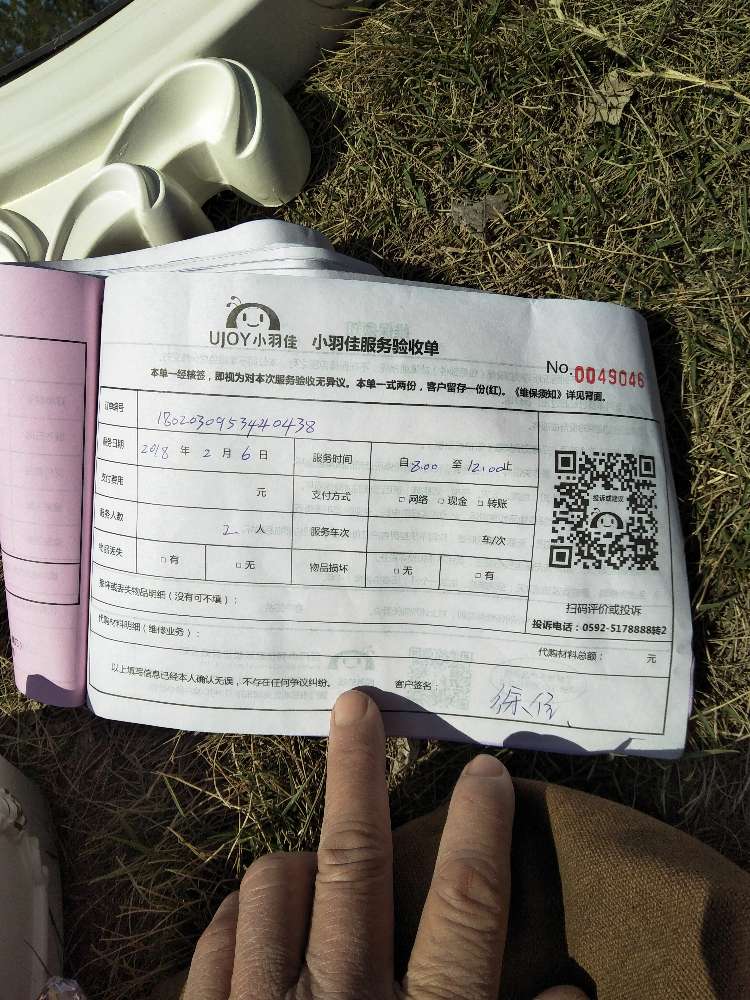 UJOY小羽佳 小羽佳服务验收单
No.0049046
本单一经核签，即视为对本次服务验收无异议。本单一式两份，客户留存一份(红)。《维保须知》详见背面。
订单编号 1802030953440438
服务日期 2018 年 2 月 6 日 服务时间 自8:00 至12:00止
支付费用 元 支付方式 □网络 □现金 □转账
服务人数 2 人 服务车次 车/次
物品丢失 □有 □无 物品损坏 □无 □有
投诉或建议
扫码评价或投诉
投诉电话：0592-5178888转2
损坏或丢失物品明细（没有可不填）：
代购材料明细（维修业务）： 代购材料总额： 元
以上填写信息已经本人确认无误，不存在任何争议纠纷。 客户签名：